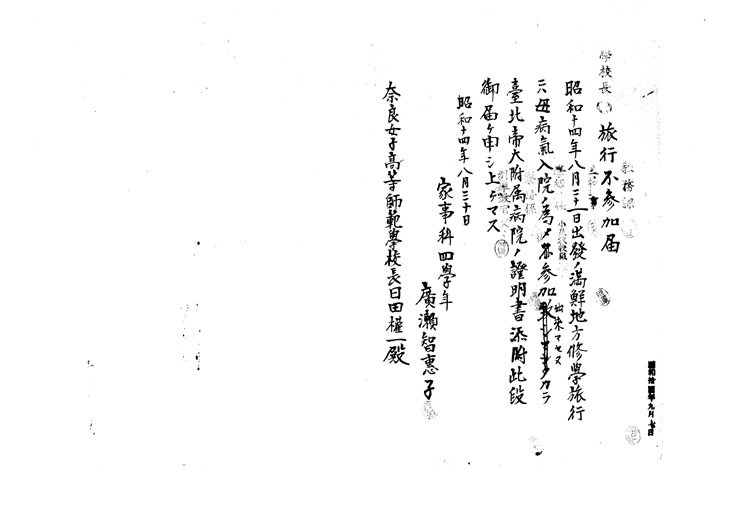 昭和拾四年九月七日
教務課
學校長
旅行不参加届
昭和十四年八月三十一日出發ノ滿鮮地方修學旅行
ニハ母病氣入院ノ為メ参加
出来マセヌ
カラ
臺北帝大附属病院ノ證明書添附此段
御届ケ申シ上ゲマス
昭和十四年八月三十日
家事科四學年
廣瀬智惠子
奈良女子高等師範學校長日田權一殿